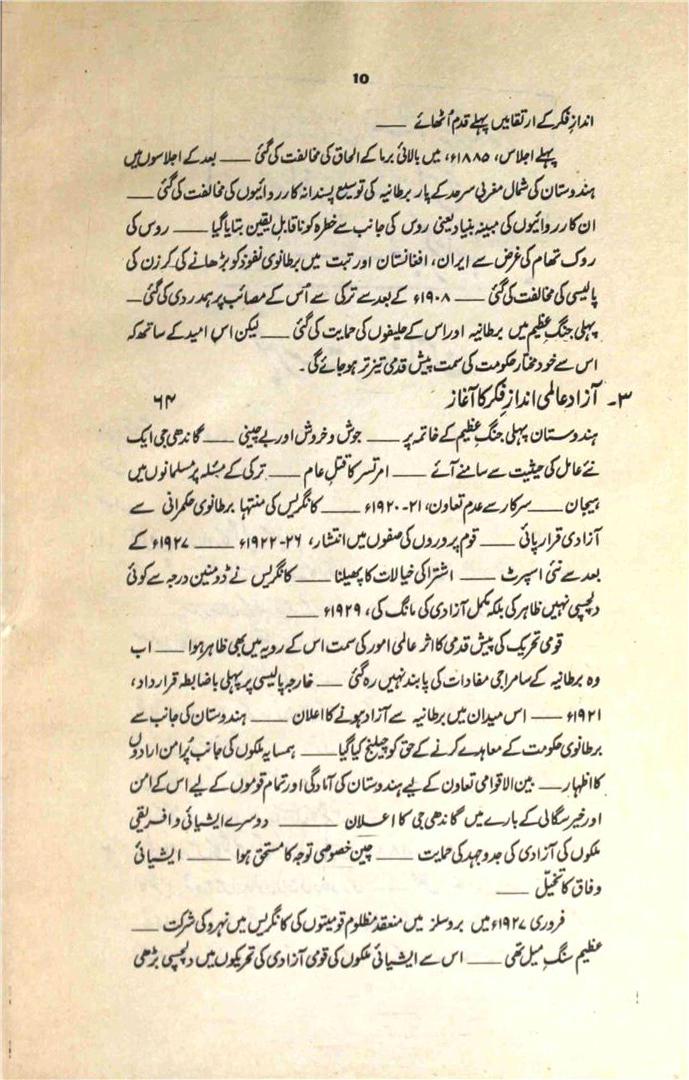 10
اندازِ فکر کے ارتقا میں پہلے قدم اُٹھائے ——
پہلے اجلاس، ۱۸۸۵ء، میں بالائی برما کے الحاق کی مخالفت کی گئی —— بعد کے اجلاسوں میں
ہندوستان کی شمال مغربی سرحد کے پار برطانیہ کی توسیع پسندانہ کارروائیوں کی مخالفت کی گئی ——
ان کارروائیوں کی مبینہ بنیاد یعنی روس کی جانب سے خطرہ کو ناقابلِ یقین بتایا گیا —— روس کی
روک تھام کی غرض سے ایران، افغانستان اور تبت میں برطانوی نفوذ کو بڑھانے کی کرزن کی
پالیسی کی مخالفت کی گئی —— ۱۹۰۸ء کے بعد سے ترکی سے اُس کے مصائب پر ہمدردی کی گئی ——
پہلی جنگِ عظیم میں برطانیہ اور اس کے حلیفوں کی حمایت کی گئی —— لیکن اس امید کے ساتھ کہ
اس سے خود مختار حکومت کی سمت پیش قدمی تیز تر ہو جائے گی۔
۳۔ آزاد عالمی اندازِ فکر کا آغاز ۶۴
ہندوستان پہلی جنگِ عظیم کے خاتمہ پر —— جوش و خروش اور بے چینی —— گاندھی جی ایک
نئے عامل کی حیثیت سے سامنے آئے —— امرتسر کا قتلِ عام —— ترکی کے مسئلہ پر مسلمانوں میں
ہیجان —— سرکار سے عدم تعاون، ۲۱-۱۹۲۰ء —— کانگریس کی منتہا برطانوی حکمرانی سے
آزادی قرار پائی —— قوم پروروں کی صفوں میں انتشار، ۲۶-۱۹۲۲ء —— ۱۹۲۷ء کے
بعد سے نئی اسپرٹ —— اشتراکی خیالات کا پھیلنا —— کانگریس نے ڈومنین درجہ سے کوئی
دلچسپی نہیں ظاہر کی بلکہ مکمل آزادی کی مانگ کی، ۱۹۲۹ء ——
قومی تحریک کی پیش قدمی کا اثر عالمی امور کی سمت اس کے رویہ میں بھی ظاہر ہوا —— اب
وہ برطانیہ کے سامراجی مفادات کی پابند نہیں رہ گئی —— خارجہ پالیسی پر پہلی باضابطہ قرارداد،
۱۹۲۱ء —— اس میدان میں برطانیہ سے آزاد ہونے کا اعلان —— ہندوستان کی جانب سے
برطانوی حکومت کے معاہدے کرنے کے حق کو چیلنج کیا گیا —— ہمسایہ ملکوں کی جانب پُرامن ارادوں
کا اظہار —— بین الاقوامی تعاون کے لیے ہندوستان کی آمادگی اور تمام قوموں کے لیے اس کے امن
اور خیر سگالی کے بارے میں گاندھی جی کا اعلان —— دوسرے ایشیائی و افریقی
ملکوں کی آزادی کی جدوجہد کی حمایت —— چین خصوصی توجہ کا مستحق ہوا —— ایشیائی
وفاق کا تخیّل ——
فروری ۱۹۲۷ء میں بروسلز میں منعقد مظلوم قومیتوں کی کانگریس میں نہرو کی شرکت ——
عظیم سنگِ میل تھی —— اس سے ایشیائی ملکوں کی قومی آزادی کی تحریکوں میں دلچسپی بڑھی